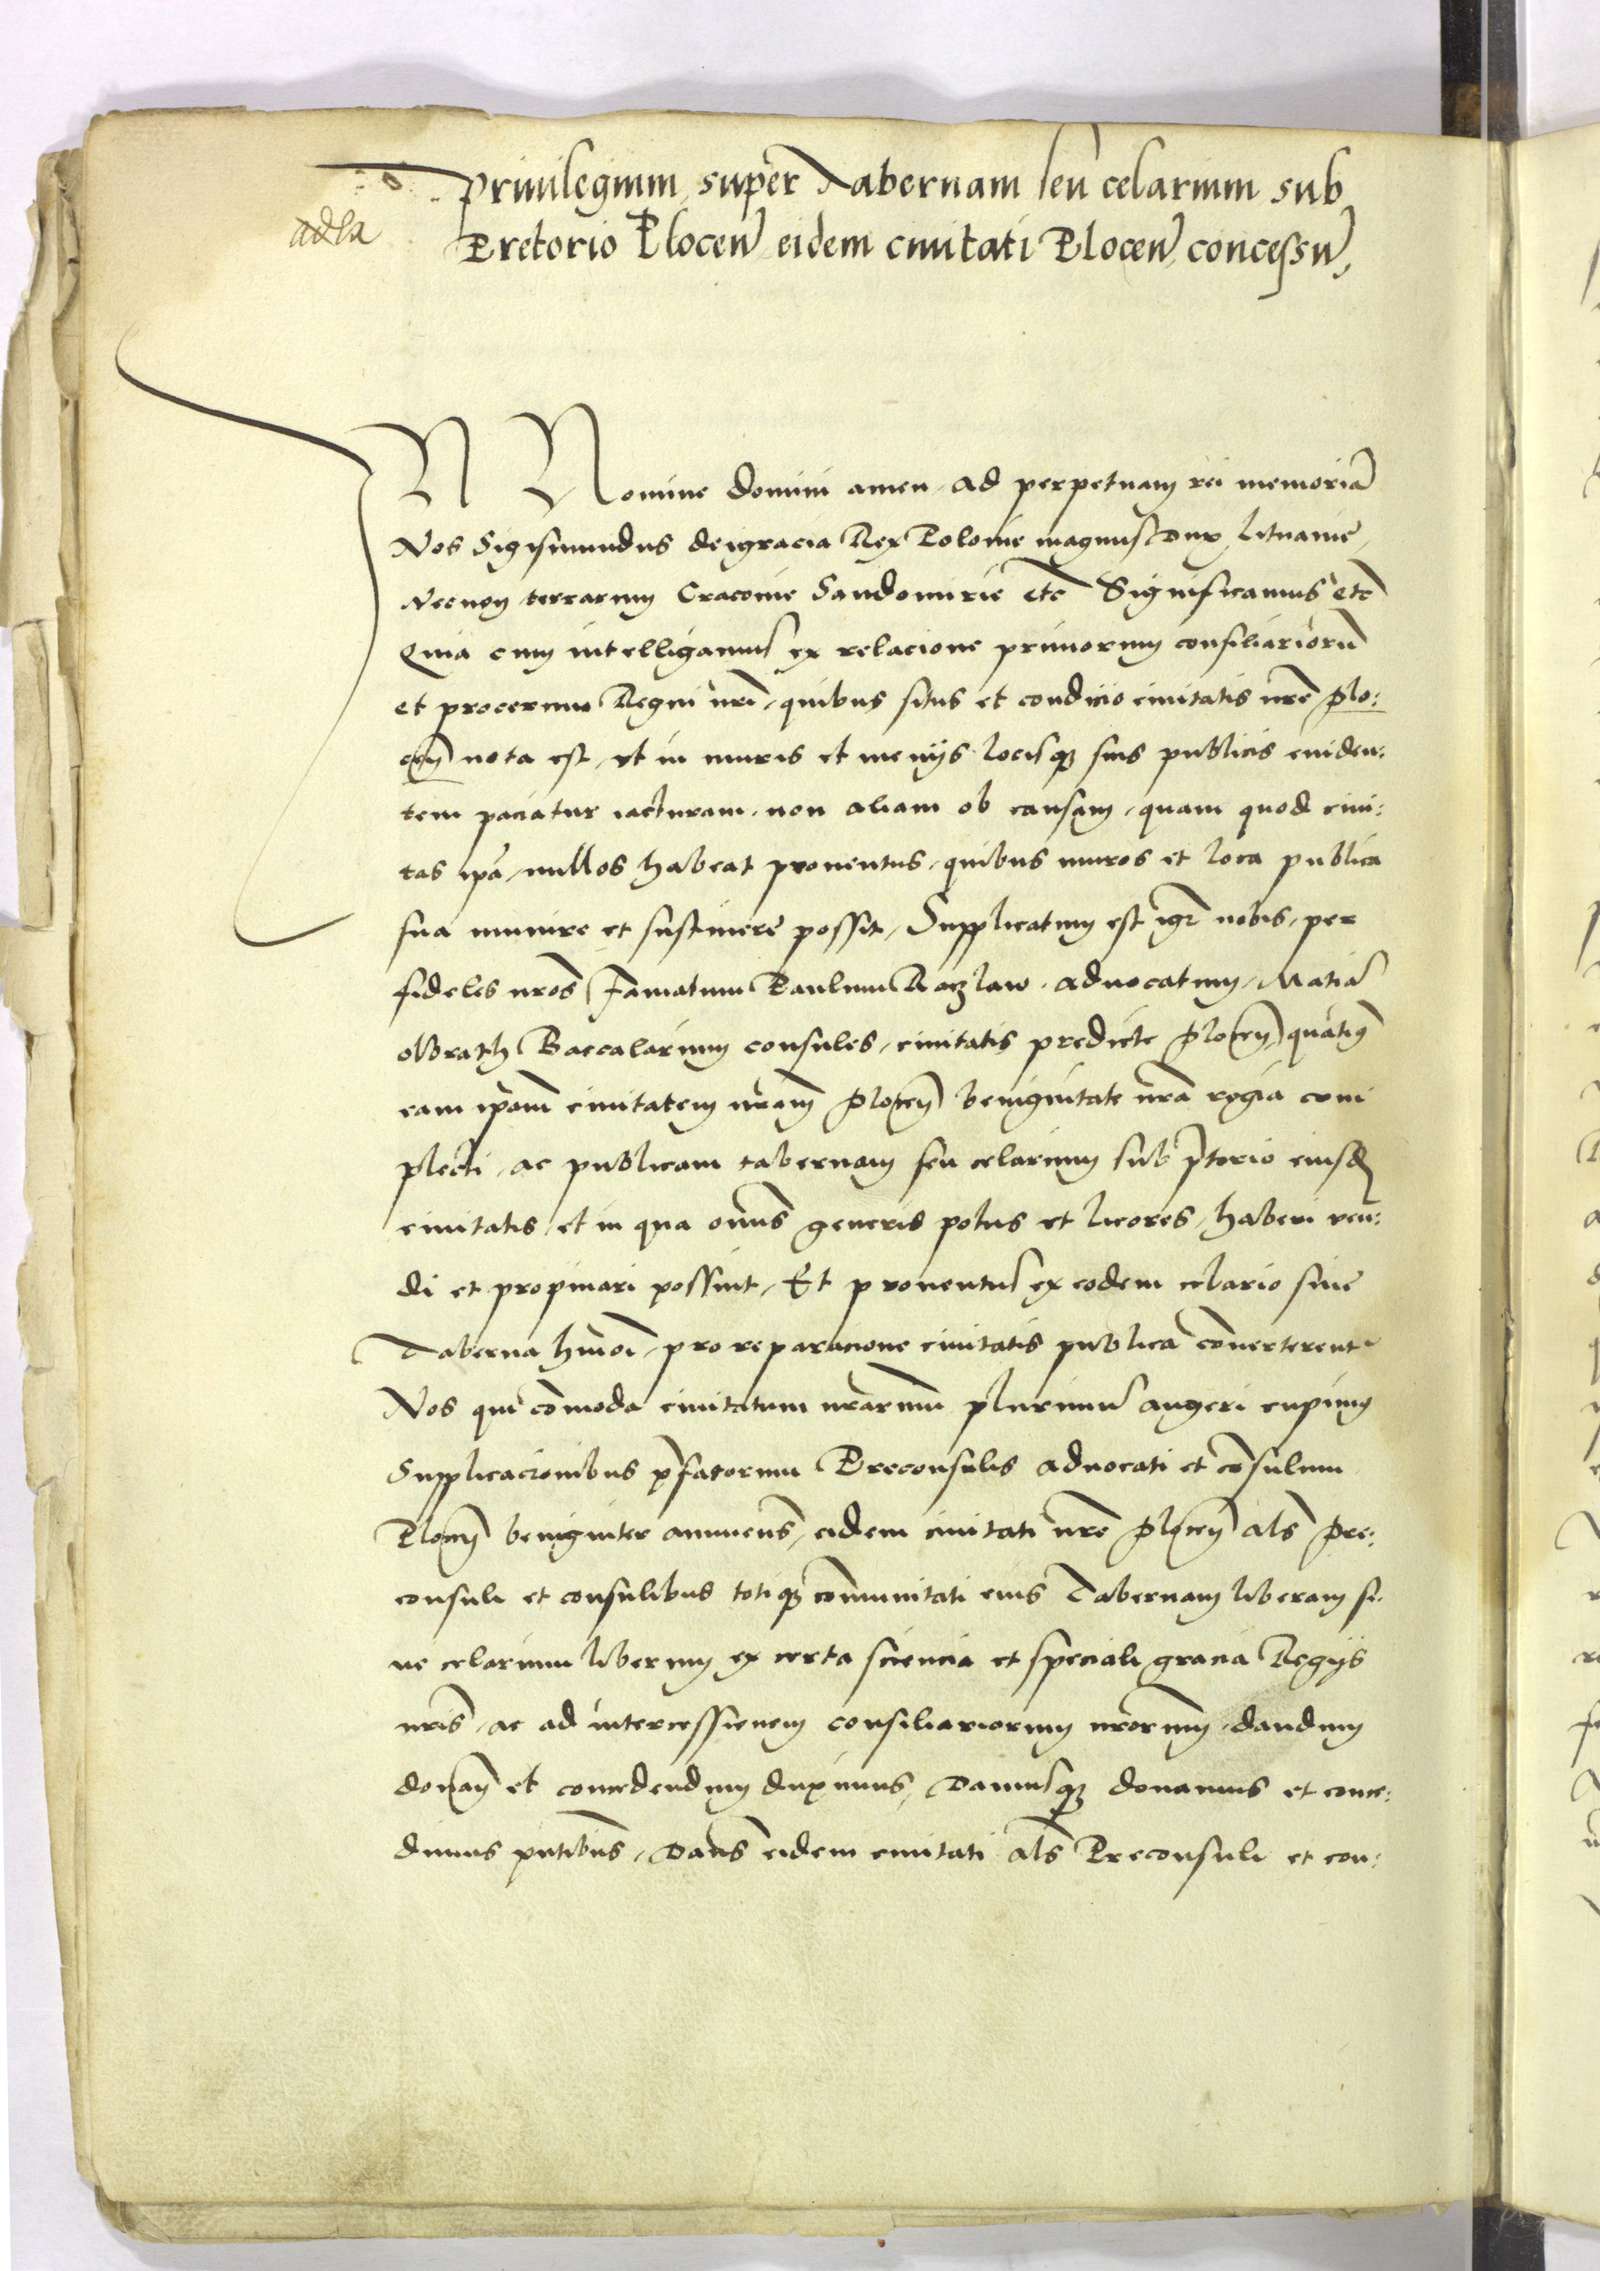 Priuilegium super Tabernam seu celarium sub
Pretorio Plocen̄ eidem ciuitati Plocen̄ concessū
adla
IN Nomine domini amen ad perpetuam rei memoriā
Nos Sigismundus dei gracia Rex Polonie magnus dux Lituanie
Necnon terrarum Cracouie Sandomirie etc̄ Significamus etc̄
Quia cum intelligamus ex relacione primorum consiliariorū
et procerum Regni nr̄i, quibus situs et condicio ciuitatis nr̄e Plo:
cen̄ nota est, vt in muris et menijs locisq₃ suis publicis euiden:
tem paciatur iacturam, non aliam ob causam, quam quod ciui:
tas ip̄a, nullos habeat prouentus, quibus muros et loca publica
sua munire et sustinere possit, Supplicatum est igr̄ nobis, per
fideles nr̄os famatum Paulum Raczlaw, aduocatum, Matiā
olbrath Baccalarium consules, ciuitatis predicte Plocen̄, quatin₉
eam ip̄am ciuitatem nr̄am Plocen̄ benignitate nr̄a regia com
plecti, ac publicam tabernam seu celarium sub p̄torio eiusd̄
ciuitatis, et in qua omīs generis potus et licores, haberi ven:
di et propinari possint, Et prouentus ex eodem celario siue
Taberna hmōi, pro reparacione ciuitatis publica cōuerterent
Nos qui cōmoda ciuitatum nr̄arum plurimū augeri cupim₉
Supplicacionibus p̄fatorum Preconsulis aduocati et cōsulum
Plocen̄ benigniter annuen̄s, eidem ciuitati nr̄e Plocen̄ al̄s Pre:
consuli et consulibus totiq₃ com̄unitati eius Tabernam liberam si
ue celarium liberum ex certa sciencia et speciali gracia Regijs
nr̄is, ac ad intercessionem consiliariorum nr̄orum, dandum
donan̄ et concedendum duximus, Damusq₃ donamus et conce:
dimus pn̄tibus, Dan̄s eidem ciuitati al̄s Preconsuli et con: